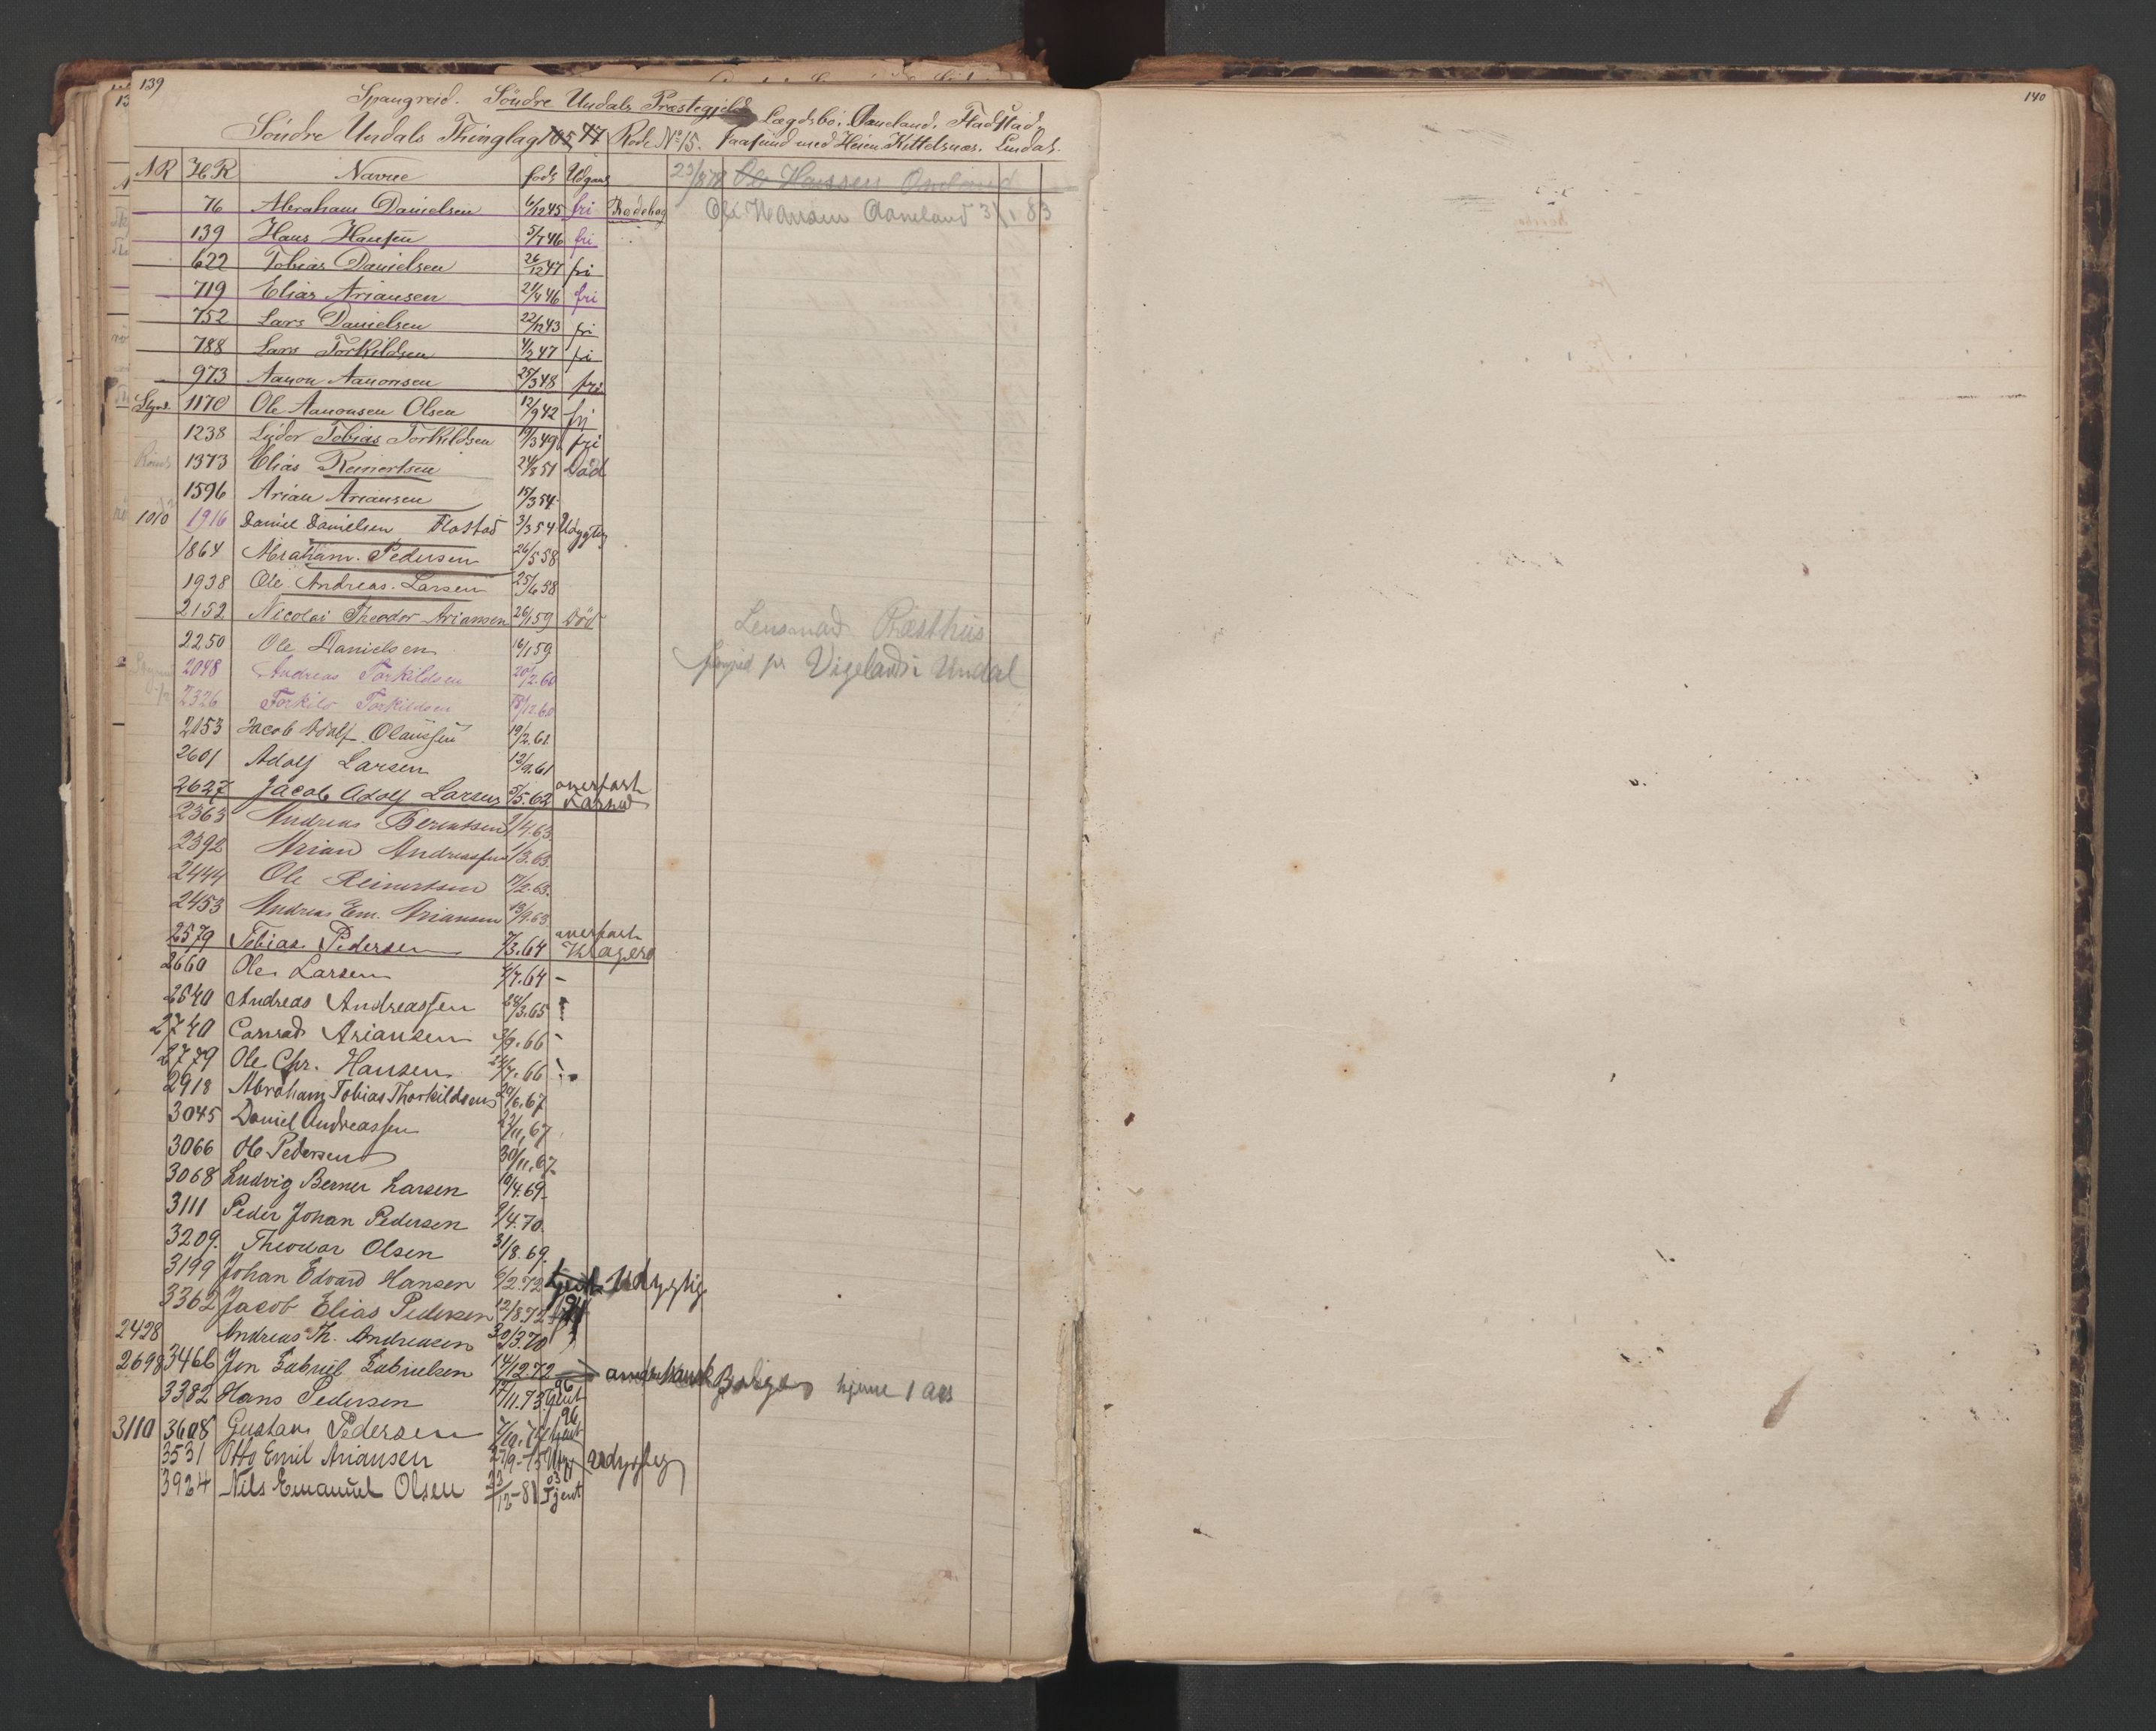 139
Spangreid. Söndre Undals Præstegjeld Lægdsbo: Aaneland. Fladstad,
Söndre Undals Thinglag 105 77 Rode No 15. Faasund med Heien Kittelsnæs. Lindal.
NR HR Navne föds Udgang 23/8 78 Ole Hanssen Aaneland
76 Abraham Danielsen 6/12 45 fri Rodebog Ole Hansen Aaneland 31/1 83
139 Hans Hansen 5/7 46 fri
622 Tobias Danielsen 26/12 47 fri
719 Elias Ariansen 21/4 46 fri
752 Lars Danielsen 22/12 43 fri
788 Lars Torkildsen 4/2 47 fri
973 Aanon Aanonsen 25/3 48 fri
1170 Ole Aanonsen Olsen 12/9 42 fri
1238 Tobias Torkildsen 19/3 49 fri
1373 Elias Reinertsen 24/8 51 Död
1596 Arian Ariansen 15/3 54
1010 1916 Daniel Danielsen Flostad 3/3 54 Udygtig
1864 Abraham Pedersen 26/5 58
1938 Ole Andreas Larsen 25/6 58
2152 Nicolai Theodor Ariansen 26/1 59 Död
Lensmad Præsthus
2250 Ole Danielsen 16/1 59
Vigeland i Undal
2048 Andreas Torkildsen 20/2.60
2326 Torkild Torkildsen 18/12.60
2053 Jacob Adolf Olaussen 19/2.61
2601 Adolf Larsen 13/9.61
2627 Jacob Adolf Larsen 5/5.62 overført
2363 Andreas Berentsen 2/4.63
2392 Arian Andreassen 1/3.63.
2444 Ole Reinertsen 17/2.63.
2453 Andreas Em. Ariansen 13/9.63
2579 Tobias Pedersen 7/3.64 overført Kragerø
2660 Ole Larsen 4/7.64 -
2640 Andreas Andreassen 24/3.65
2740 Conrad Ariansen 3/9.66 -
2779 Ole Chr. Hansen 24/7.66
2918 Abraham Tobias Thorkildsen 29/6.67
3045 Daniel Andreassen 22/11.67
3066 Ole Pedersen 30/11.67
3068 Ludvig Berner Larsen 10/4.69
3111 Peder Johan Pedersen 9/4.70.
3209. Theodor Olsen 31/8.69.
3199 Johan Edvard Hansen 6/2.72 tjent Udygtig
3362 Jacob Elias Pedersen 12/8.72
2428 Andreas Th. Andreasen 30/3.70
2698 3466 Jen Gabriel Gabrielsen 14/12.72
3382 Hans Pedersen 17/11.73 96 tjent hjeme 1 aar
3110 3608 Gustav Pedersen 7/10.74 96 tjent
3531 Otto Emil Ariansen 27/9-75 Udygtig
3924 Nils Emanuel Olsen 23/12-81 03 Tjent
140